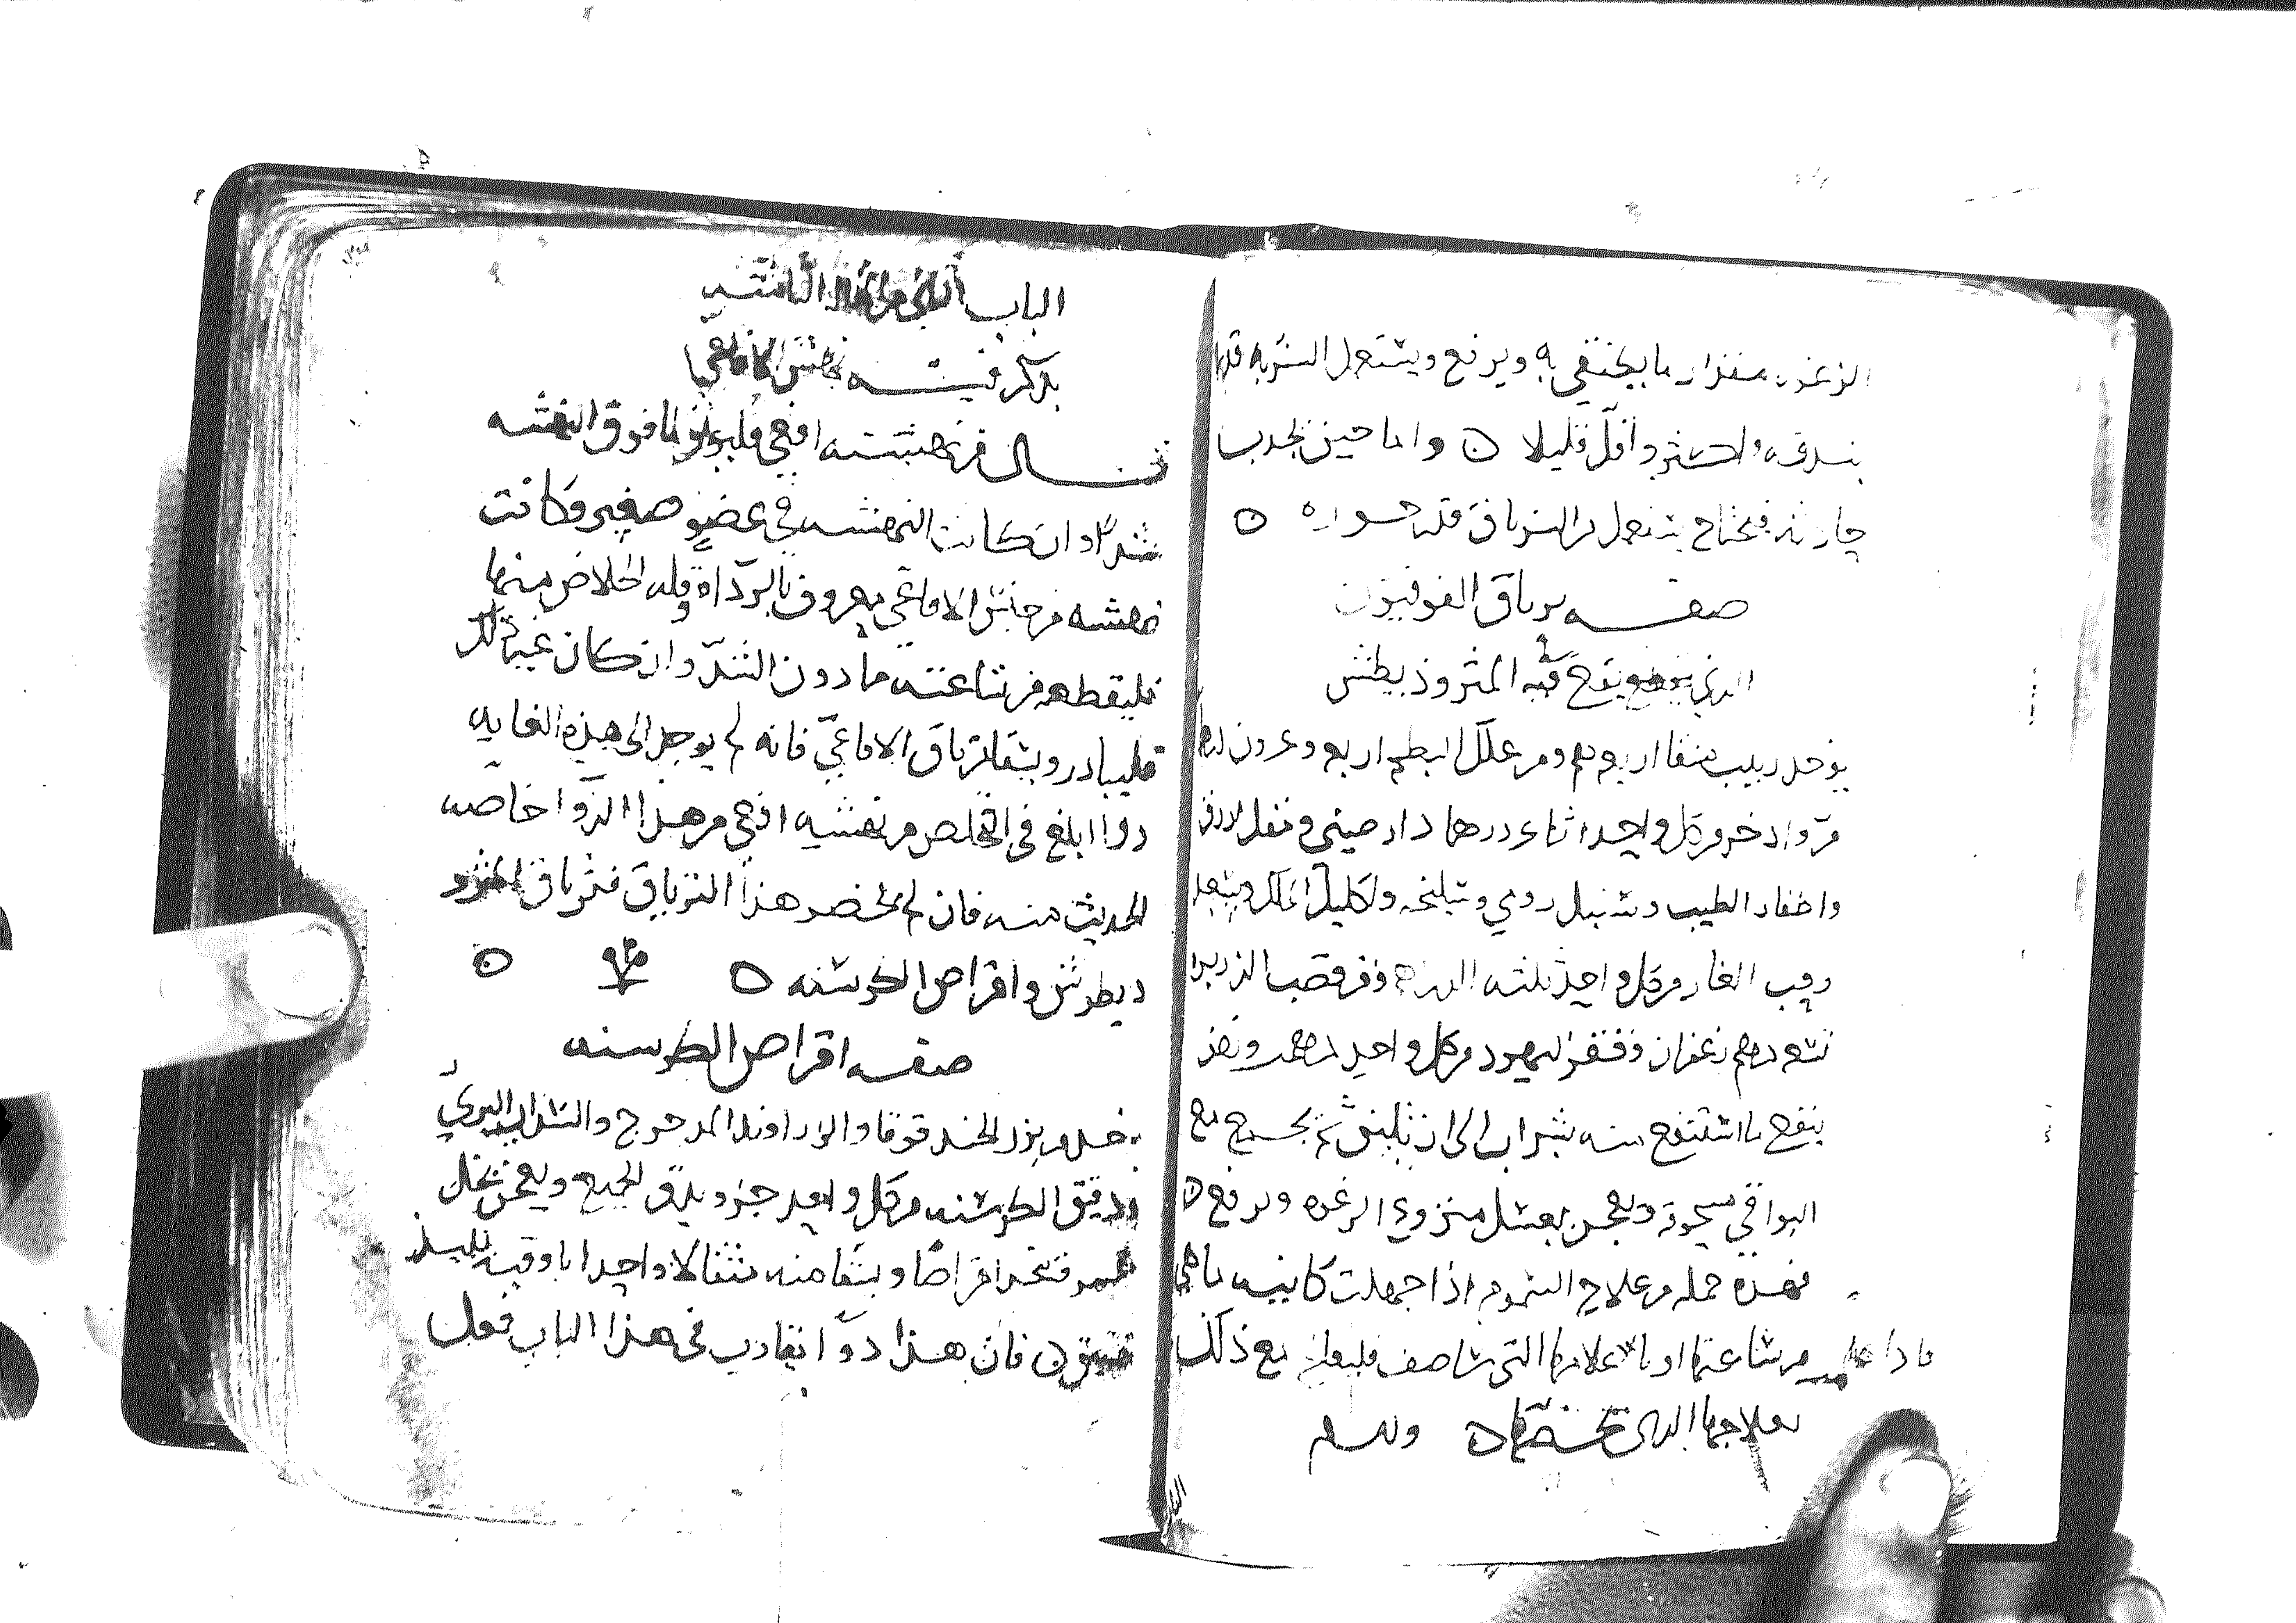 الرغوه مقدار ما يكتفي به ويرفع ويستعمل الشربه قدر
بندقه واكثر واقل قليلا ٥ واما حين يجدب
فيحتاج يستعمل من الترياق قدر جوزه ٥
صفه ترياق الفوفيون
الذي يقع فيه المثروذيطش
يوخذ زبيب منقا اربعه ومن علك البطم اربعه وعشرون درهما
مر واذخر من كل واحد اثنا عشر درهما دارصيني ومقل ازرق
واظفار الطيب وسنبل رومي وسليخه واكليل الملك وسعد
وحب الغار من كل واحد ثلثه الدراهم ومن قصب الذريره
تسعه دراهم زعفران وقفر اليهود من كل واحد درهمين ونصف
ينقع ما استنقع منه بشراب الى ان يلين ثم يخرج مع
البواقي مسحوقة ويعجن بعسل منزوع الرغوه ويرفع ٥
فهذه جمله من علاج السموم اذا جهلت كانيه ما هي
فاذا من ساعتها او بالاعلامها التي ساصف فليعالج مع ذلك
بعلاجها الذي يخصها ٥
الباب الثاني من المقاله الثامنه
يذكر فيه نهش الافاعي
قال من نهشته افعي فليوثق ما فوق النهشه
شدا وان كانت النهشه في عضو صغير وكانت
نهشه من جنس الافاعي معروف بالرداة وقله الخلاص منها
فليقطعه من ساعته ما دون الشد وان كان غير ذلك
فليبادر ويسقا ترياق الافاعي فانه لم يوجد الى هذه الغايه
دوا ابلغ في التخلص من نهشه افعي من هذا الدوا خاصه
الحديث منه فان لم يحضر هذا الترياق فترياق المثرو
ديطوش واقراص الكرسنه ٥ ٥
صفه اقراص الكرسنه
يوخذ من بزر الحندقوقا والزراوند المدحرج والسذاب البري
ودقيق الكرسنه من كل واحد جزو يدق الجميع ويعجن بخل
خمر وتتخذ اقراصا ويسقا منه مثقالا واحدا باوقيه
فان هذا دوا يقارب في هذا الباب فعل